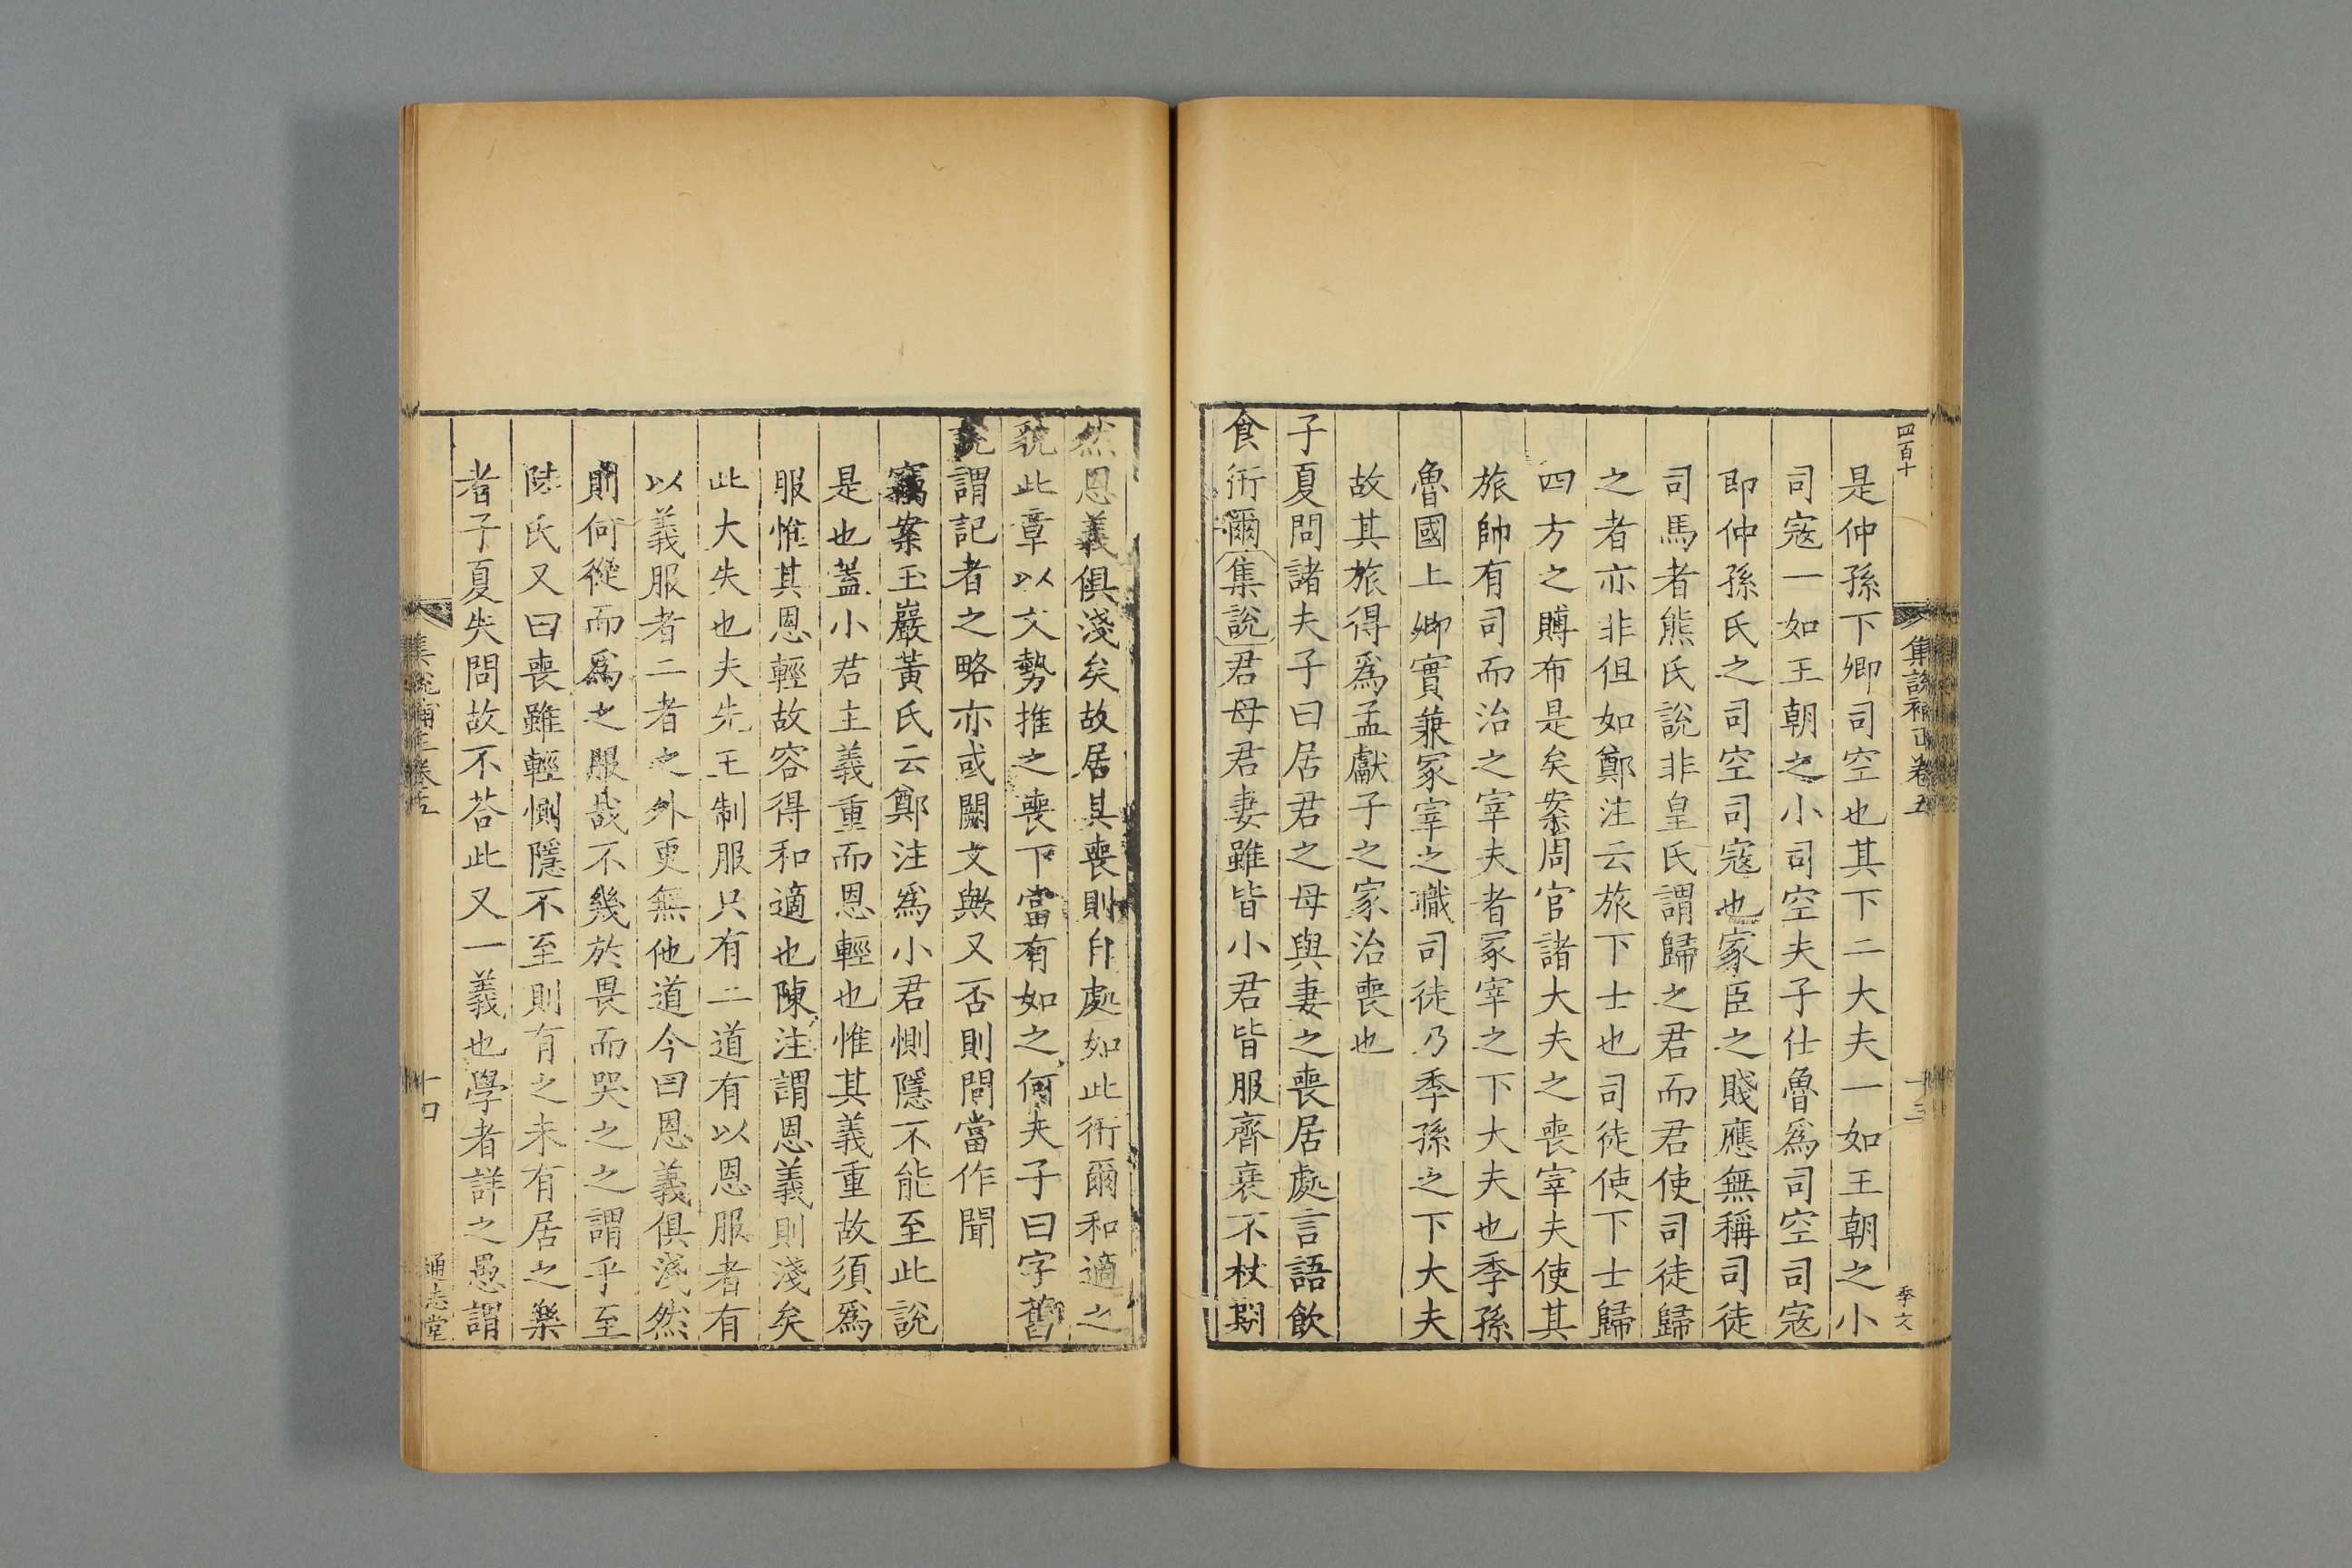 四百十
集說補正卷五
十三
季文
是仲孫下卿司空也其下二大夫一如王朝之小
司寇一如王朝之小司空夫子仕魯爲司空司寇
即仲孫氏之司空司寇也家臣之賤應無稱司徒
司馬者熊氏說非皇氏謂歸之君而君使司徒歸
之者亦非但如鄭注云旅下士也司徒使下士歸
四方之賻布是矣案周官諸大夫之喪宰夫使其
旅帥有司而治之宰夫者冢宰之下大夫也季孫
魯國上卿實兼冢宰之職司徒乃季孫之下大夫
故其旅得爲孟獻子之家治喪也
子夏問諸夫子曰居君之母與妻之喪居處言語飲
食衎爾集說君母君妻雖皆小君皆服齊衰不杖期
然恩義俱淺矣故居其喪則自處如此衎爾和適之
貌此章以文勢推之喪下當有如之何夫子曰字舊
說謂記者之略亦或闕文歟又否則問當作聞
竊案玉巖黃氏云鄭注爲小君惻隱不能至此說
是也蓋小君主義重而恩輕也惟其義重故須爲
服惟其恩輕故容得和適也陳注謂恩義則淺矣
此大失也夫先王制服只有二道有以恩服者有
以義服者二者之外更無他道今曰恩義俱淺然
則何從而爲之服哉不幾於畏而哭之之謂乎至
陸氏又曰喪雖輕惻隱不至則有之未有居之樂
者子夏失問故不荅此又一義也學者詳之愚謂
集說補正卷五
十四
通志堂